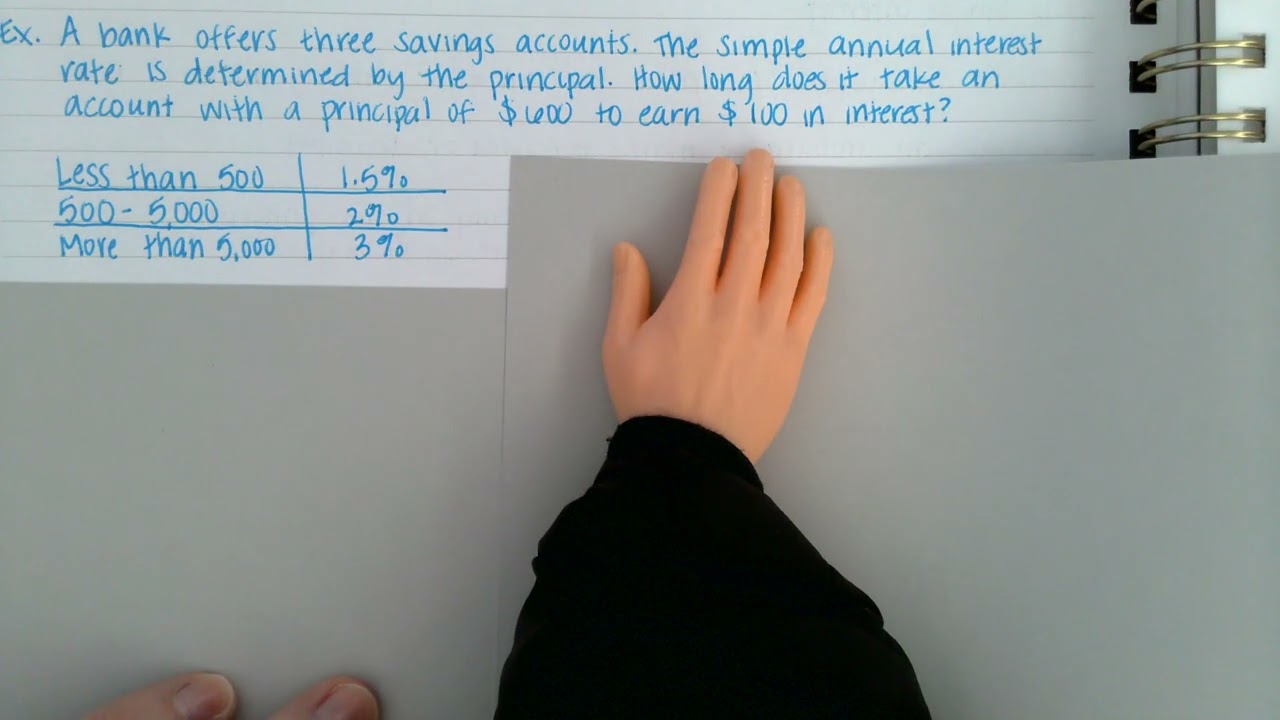 Ex. A bank offers three savings accounts. The simple annual interest
rate is determined by the principal. How long does it take an
account with a principal of $600 to earn $100 in interest?
Less than 500 1.5%
500 - 5,000 2%
More than 5,000 3%